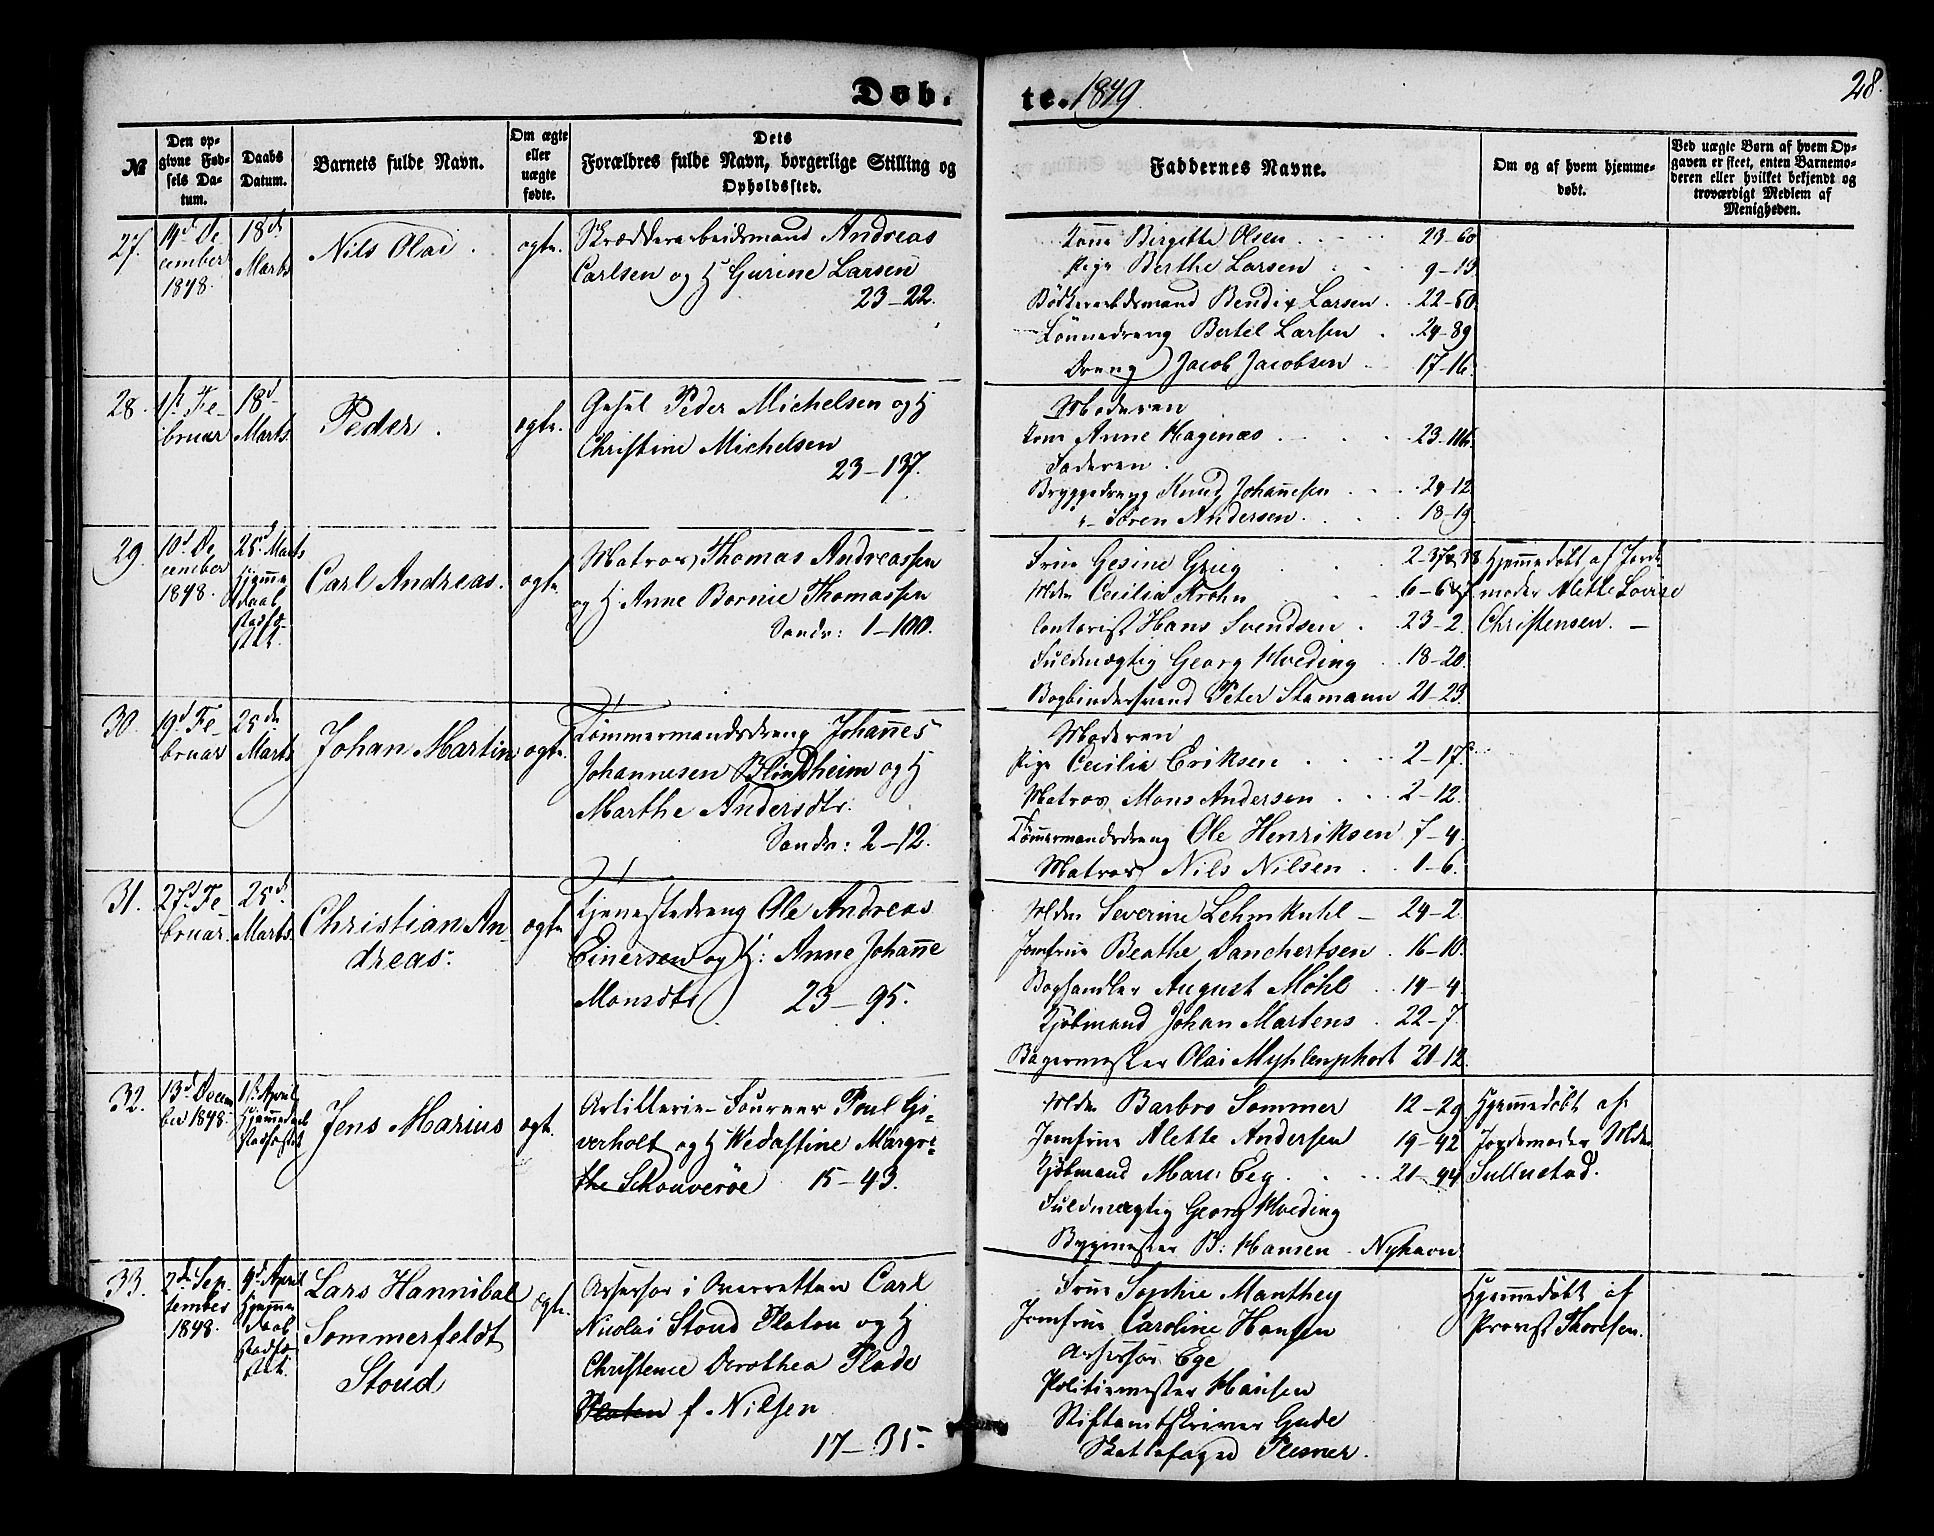 Døb.
te. 1849.
28.
№
Den op-
givne Fød-
sels Da-
tum.
Daabs
Datum.
Barnets fulde Navn.
Om ægte
eller
uægte
fødte.
Dets
Forældres fulde Navn, borgerlige Stilling og
Opholdssted.
Faddernes Navne.
Om og af hvem hjemme-
døbt.
Ved uægte Børn af hvem Op-
gaven er skeet, enten Barnemo-
deren eller hvilket bekjendt og
troværdigt Medlem af
Menigheden.
27.
14d De
cember
1848.
18de
Marts
Nils Olai.
ægte.
Skrædderarbeidsmand Andreas
Carlsen og H Gurine Larsen
23-22.
Kone Birgitte Olsen 23-60
Pige Berthe Larsen 9-13
Bødkerarbdsmand Bendix Larsen. 22-50
Tønnedreng Bertel Larsen 24-89
Dreng Jacob Jacobsen 17-16.
28.
1ste Fe-
bruar
18d
Marts.
Peder.
ægte.
Gesel Peder Michelsen og H
Christine Michelsen
23-137.
Moderen
Kone Anne Hagenæs 23-116.
Faderen.
Bryggedreng Knud Johannesen 24-12
"- Søren Andersen. 18-19
29.
10d De
cember
1848.
25d Marts
Hjemme
daab
stadfæ-
stet.
Carl Andreas.
ægte
Matros Thomas Andreassen
og H Anne Bornie Thomassen
Sandv: 1-100.
Frue Gesine Grieg 2-37&38
Mdm Cecilia Krohn 6-6&7
Contorist Hans Svendsen. 23-2.
Fuldmægtig Georg Hveding 18-20.
Bogbindersvend Peter Stamann 21-23.
Hjemmedøbt af Jorde
moder Alette Lovise
Christensen. —
30.
19d Fe-
bruar
25de
Marts
Johan Martin
ægte.
Tømmermandsdreng Johannes
Johannesen Blindheim og H
Marthe Andersdtr.
Sandv: 2-12.
Moderen
Pige Cecilia Eriksen 2-17.
Matros Mons Andersen 2-12.
Tømmermandsdreng Ole Henriksen 7-4.
Matros Nils Nilsen 1-6.
31.
27d Fe-
bruar.
25d
Marts.
Christian An-
dreas.
ægte
Tjenestedreng Ole Andreas
Einersen og H: Anne Johanne
Monsdtr 23-95.
Mdm Severine Lehmkuhl — 24-2.
Jomfrue Beathe Danchertsen. 16-10.
Boghandler August Møhl 14-4.
Kjøbmand Johan Martens. 22-7.
Bagermester Olai Myhlenphort 21-12.
32.
13d Decem
ber 1848.
1ste April
Hjemmedaab
stadfæstet
Jens Marius
ægt.
Artillerie-Fourneer Poul Gi-
verholt og H Wedastine Margre-
the Skouverøe 15-43.
Mdm Barbro Sommer 12-29
Jomfrue Alette Andersen 19-42
Kjøbmand Marc: Eeg. 21-44
Fuldmægtig Georg Hveding
Bygmester B: Hansen - Nyhavn
Hjemmedøbt af
Jordemoder Mdm
Sulustad.
33.
2de Sep
tember
1848.
9d April
Hjemme
daab
stadfæ-
stet.
Lars Hannibal
Sommerfeldt
Stoud
ægte.
Assessor i Overretten Carl
Nicolai Stoud Platou og H
Christence Dorothea Flade
Platou f. Nilsen
17-35.
Frue Sophie Manthey
Jomfrue Caroline Hansen
Assessor Ege
Politiemester Hansen
Stiftamtskriver Gade
Skattefoged Plesner.
Hjemmedøbt af
Provst Thoresen.